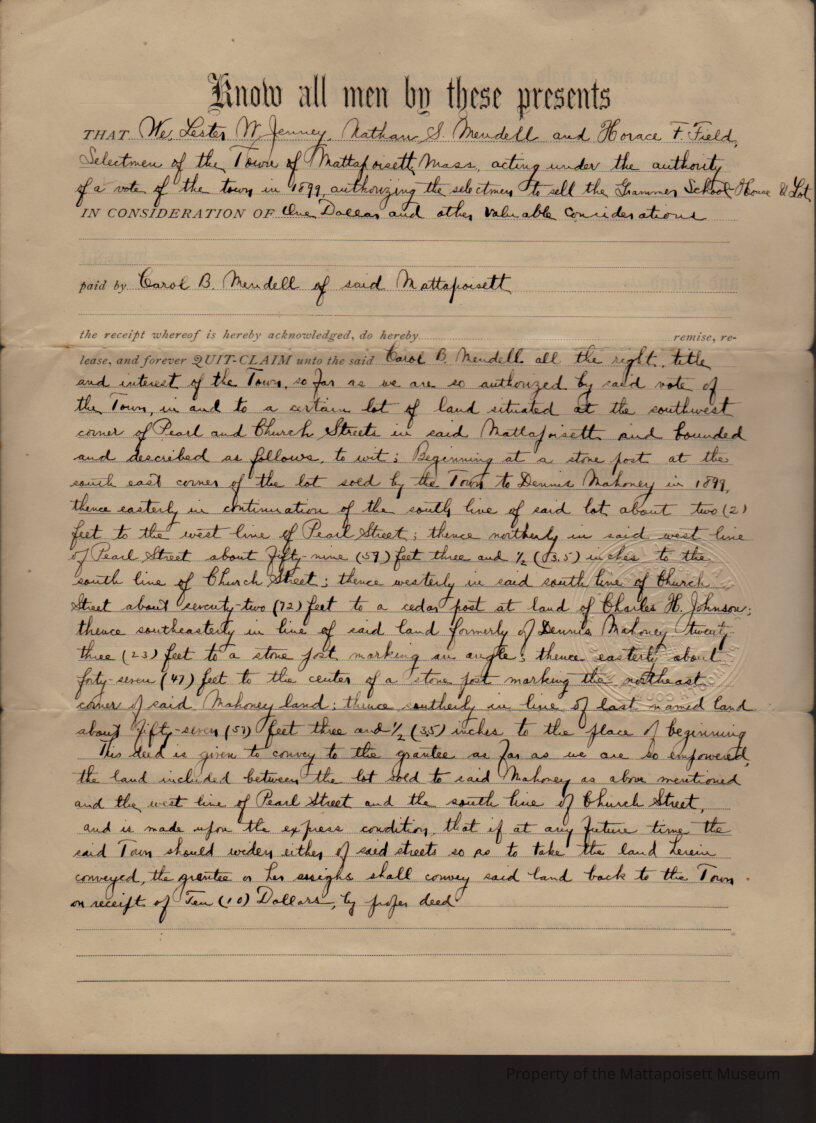 Know all men by these presents
THAT We, Lester W. Jenney, Nathan S. Mendell and Horace F. Field,
Selectmen of the Town of Mattapoisett, Mass., acting under the authority
of a vote of the town in 1899, authorizing the selectmen to sell the Grammer School House & Lot,
IN CONSIDERATION OF One Dollar and other valuable considerations
paid by Carol B. Mendell of said Mattapoisett
the receipt whereof is hereby acknowledged, do hereby remise, re-
lease, and forever QUIT-CLAIM unto the said Carol B. Mendell all the right, title
and interest of the Town, so far as we are so authorized by said vote of
the Town, in and to a certain lot of land situated at the southwest
corner of Pearl and Church Streets in said Mattapoisett and bounded
and described as follows, to wit; Beginning at a stone post at the
south east corner of the lot sold by the Town to Dennis Mahoney in 1899,
thence easterly in continuation of the south line of said lot about two (2)
feet to the west line of Pearl Street; thence northerly in said west line
of Pearl Street about fifty-nine (59) feet three and 1/2 (3.5) inches to the
south line of Church Street; thence westerly in said south line of Church
Street about seventy-two (72) feet to a cedar post at land of Charles H. Johnson;
thence southeasterly in line of said land formerly of Dennis Mahoney twenty-
three (23) feet to a stone post marking an angle; thence easterly about
forty-seven (47) feet to the center of a stone post marking the northeast
corner of said Mahoney land; thence southerly in line of last named land
about fifty-seven (57) feet three and 1/2 (3.5) inches to the place of beginning
This deed is given to convey to the grantee as far as we are so empowered,
the land included between the lot sold to said Mahoney as above mentioned
and the west line of Pearl Street and the south line of Church Street,
and is made upon the express condition, that if at any future time the
said Town should widen either of said streets so as to take the land herein
conveyed, the grantee or her assigns shall convey said land back to the Town
on receipt of Ten (10) Dollars, by proper deed
Property of the Mattapoisett Museum